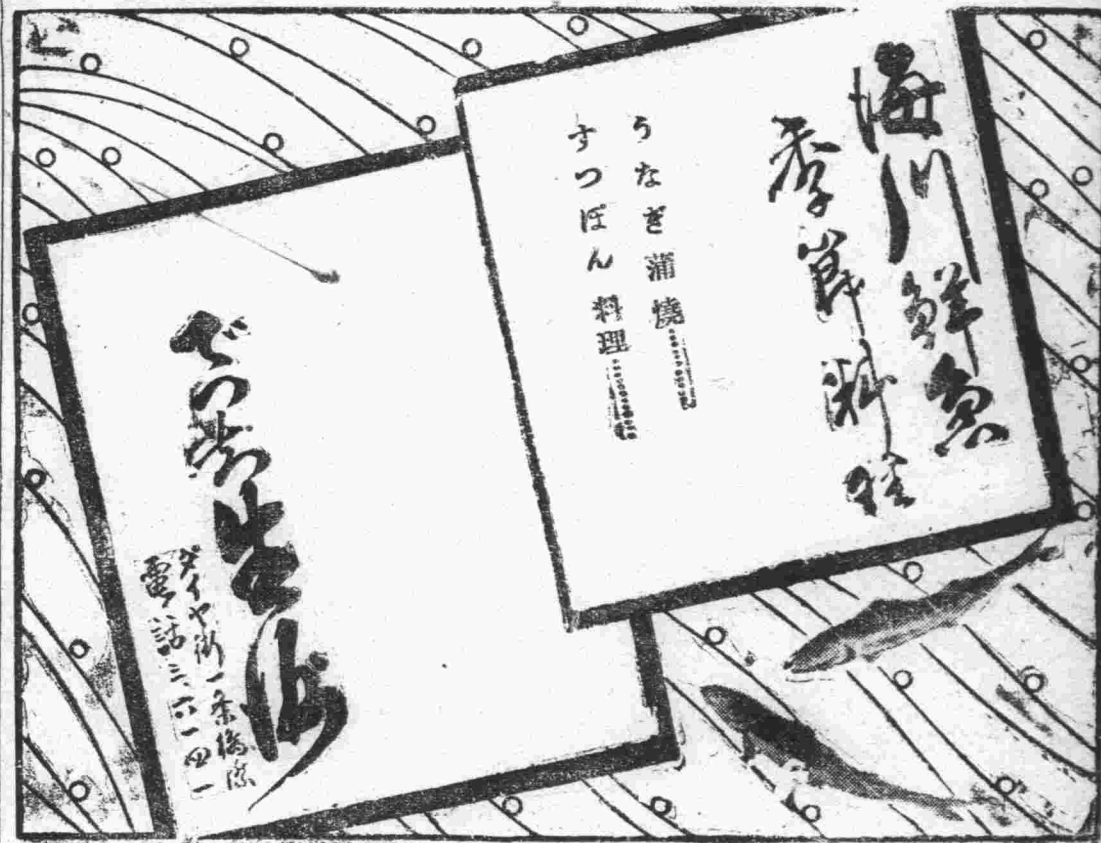 海川鮮魚
季節料理
うなぎ蒲燒
すつぽん料理
ざこ場生洲
ダイヤ街一条橋際
電話三、六一四一